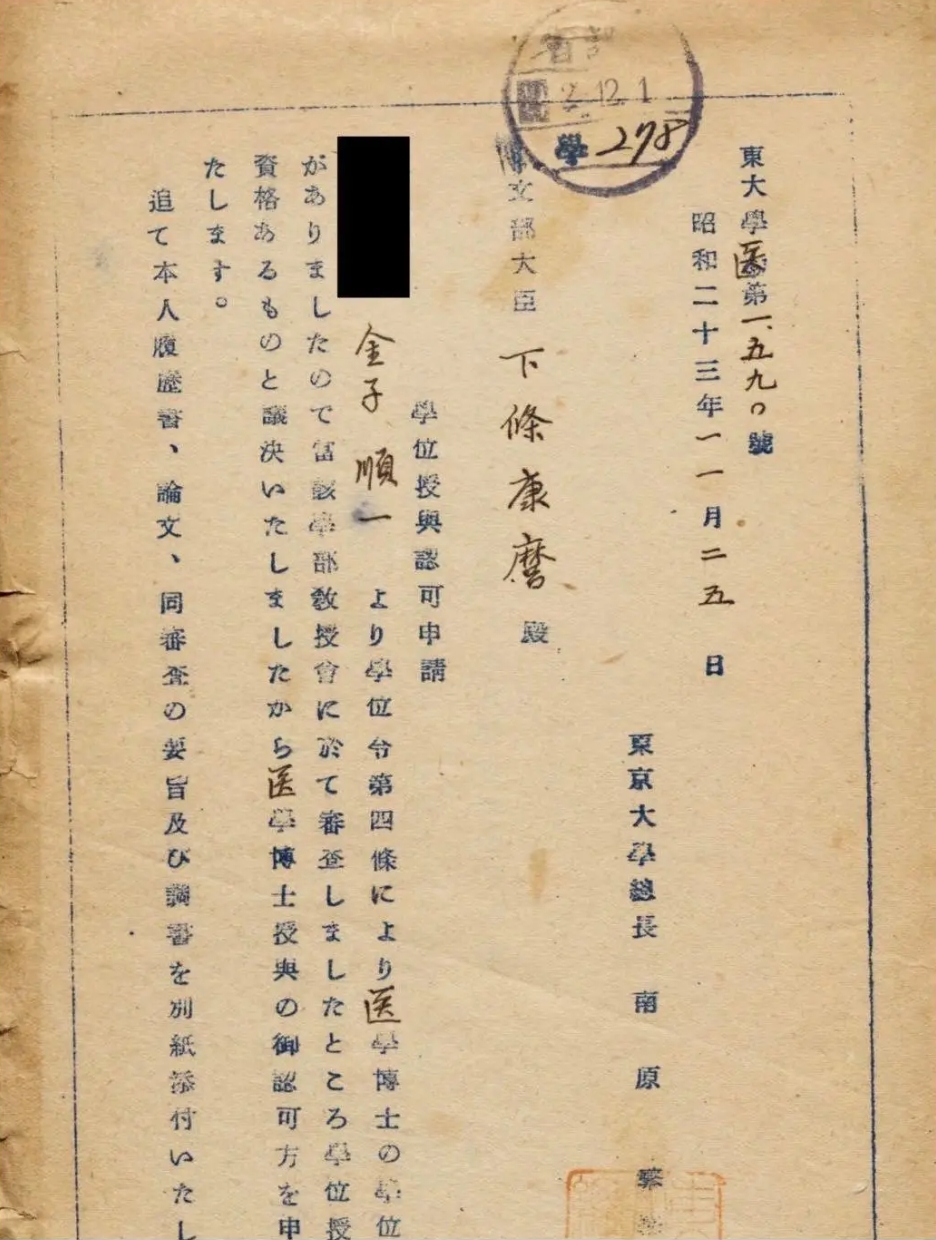 東大學医第一、五九〇號
昭和二十三年一一月二五日
東京大學總長 南原繁
文部大臣 下條康麿 殿
學位授與認可申請
金子順一 より學位令第四條により医學博士の學位
がありましたので當該學部教授會に於て審査しましたところ學位授
資格あるものと議決いたしましたから医學博士授與の御認可方を申
たします。
追て本人履歴書、論文、同審査の要旨及び調書を別紙添付いたし
2.12.1
學278